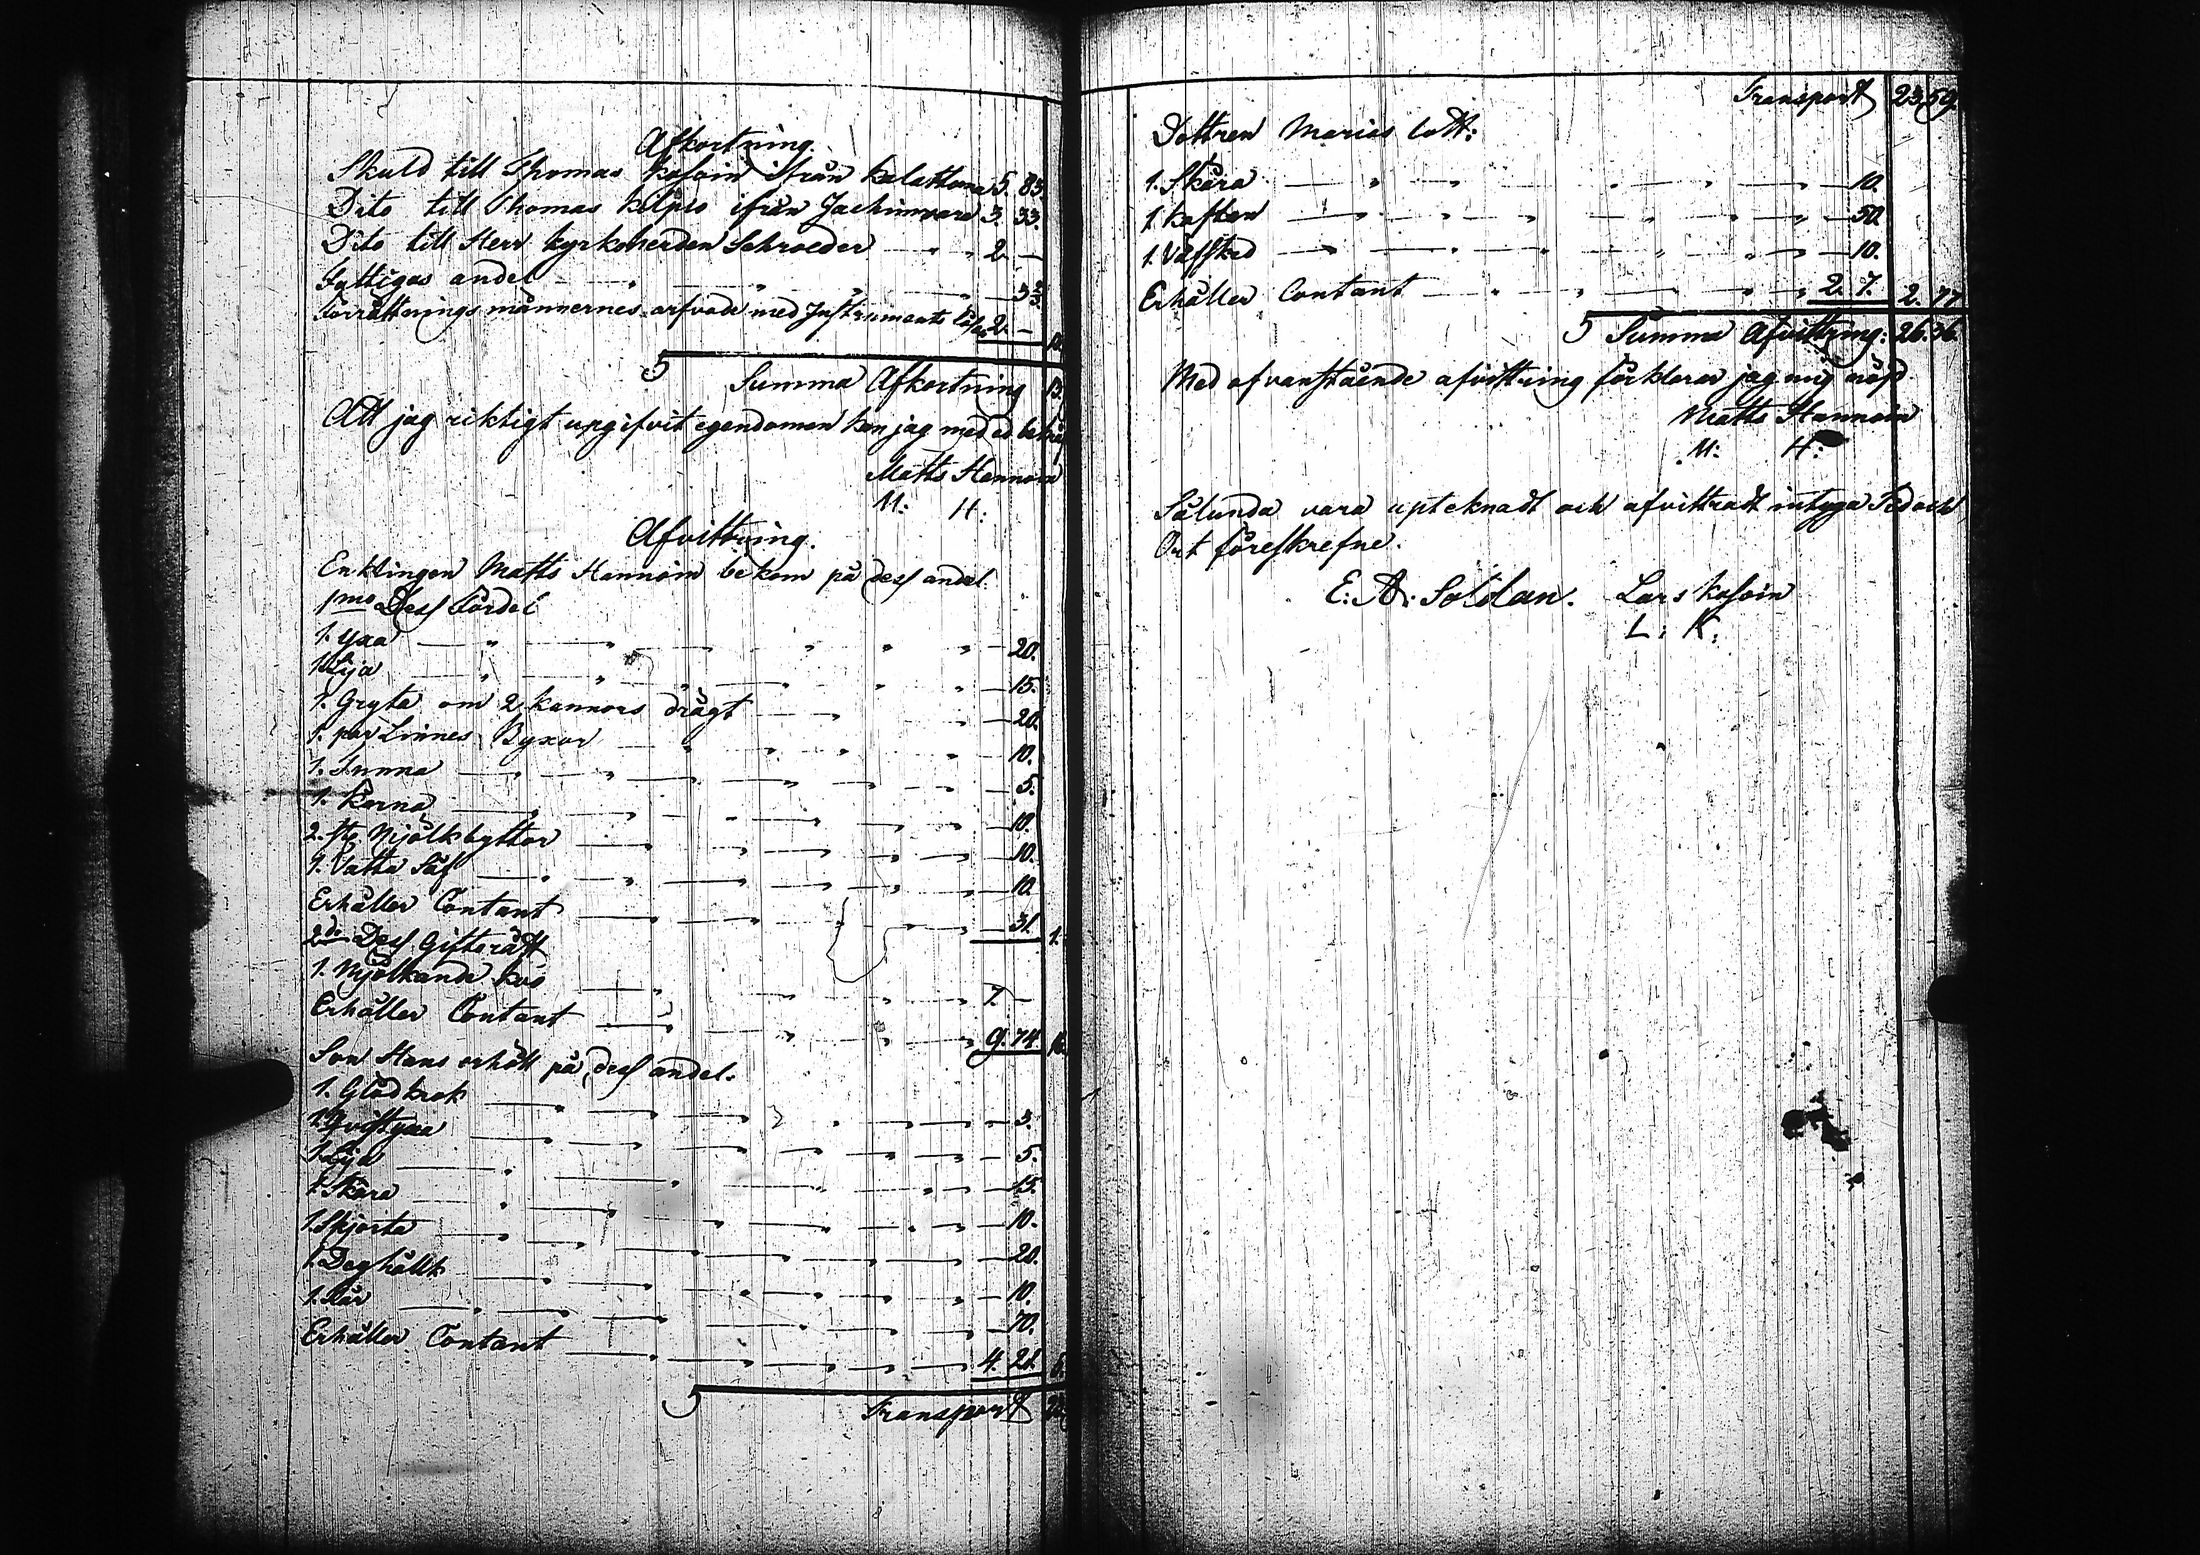 Afkortning.
Skuld till Thomas Kosoin ifrån Kalattoma 5. 83
Dito till Thomas Kilpio ifrån Jachimvara 3. 33.
Dito till Herr Kyrkoherden Schroeder — " " 2. —
Fattigas andel — " " " — 33.
Förrättnings männernes arfvode med Instruments 2. —
Summa Afkortning 13.
Att jag riktigt upgifvit egendomen kan jag med ed
Matts Hannoin
M: H:
Afvittring.
Enklingen Matts Hannoin bekom på dess andel
1mo Dess Fördel
1. yxa — " " — 20.
1. Lja — " " — 15.
1. Gryta om 2 kannors drägt — 20.
1. par Linnes Byxor — 10.
1. Tunna — 5.
1. Kerna — 10.
2. st. Mjölkbyttor — 10.
1. Vatta Såf — 10.
Erhåller Contant — 31. 1.
2do Dess Giftorätt
1. Mjölkande ko — 7. —
Erhåller Contant — 9. 74. 16.
Son Hans erhöll på dess andel.
1. Glödkrok — 3.
1. Qvistyxa — 5.
1. Lja — 15.
1. Skära — 10.
1. Skjorta — 20.
1. Deghållk — 10.
1. Får — 70.
Erhåller Contant — 4. 21. 6.
Transport
Transport 23,59.
Dottren Marias lott:
1. Skära — 10.
1. Kaftan — 50.
1. Väfsked — 10.
Erhåller Contant — 2. 7. 2. 77
Summa Afvittring: 26.36.
Med ofvanstående afvittring förklarar jag mig nöjd
Matts Hannoin
M: H:
Sålunda vara uptecknadt och afvittradt intyga Tid och
Ort föreskrefne.
E: A: Soldan. Lars Kosoin
L: K: